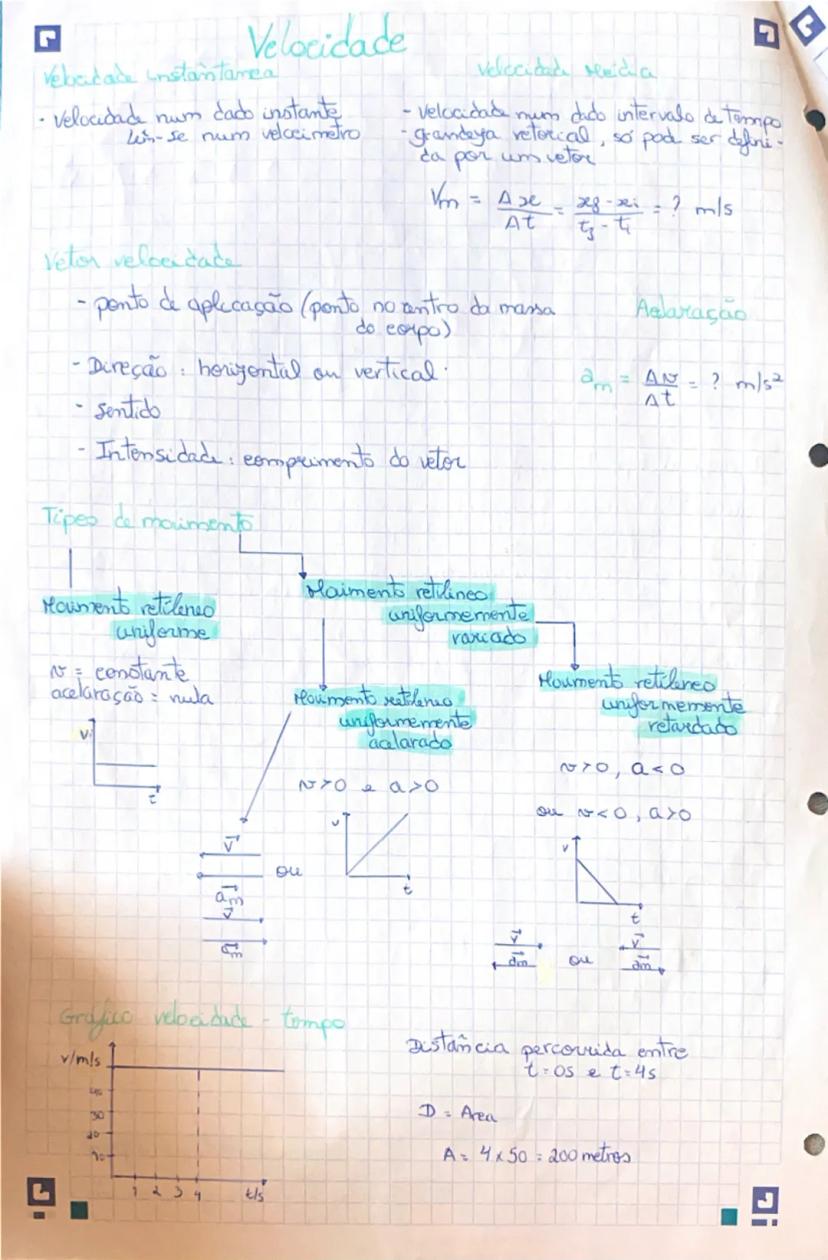 Velocidade
Velocidade instantanea
• Velocidade num dado instante
lê-se num velocimetro
Velocidade Média
- Velocidade num dado intervalo de tempo
- grandeza vetorial, só pode ser defini-
da por um vetor
Vm = Δx/Δt = xf - xi / tf - ti = ? m/s
Vetor velocidade
- ponto de aplicação (ponto no centro da massa
do corpo)
- Direção: horizontal ou vertical.
- sentido
- Intensidade: comprimento do vetor
Acelaração
am = Δv/Δt = ? m/s²
Tipos de movimento
Movimento retilineo
uniforme
v = constante
acelaração = nula
v
t
Movimento retilineo
uniformemente
variado
Movimento retilineo
uniformemente
acelarado
v>0 e a>0
v
t
v⃗
a⃗m
ou
v⃗
a⃗m
Movimento retilineo
uniformemente
retardado
v>0, a<0
ou v<0, a>0
v
t
v⃗
a⃗m
ou
v⃗
a⃗m
Gráfico velocidade - tempo
v/m/s
30
20
10
1 2 3 4 t/s
Distância percorrida entre
t=0s e t=4s
D = Area
A = 4 x 50 = 200 metros